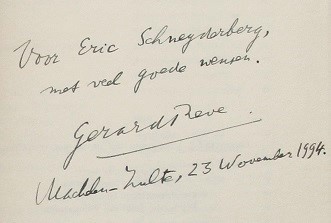 Voor Eric Schneyderberg,
met veel goede wensen.
Gerard Reve
Machelen-Zulte, 23 November 1994.